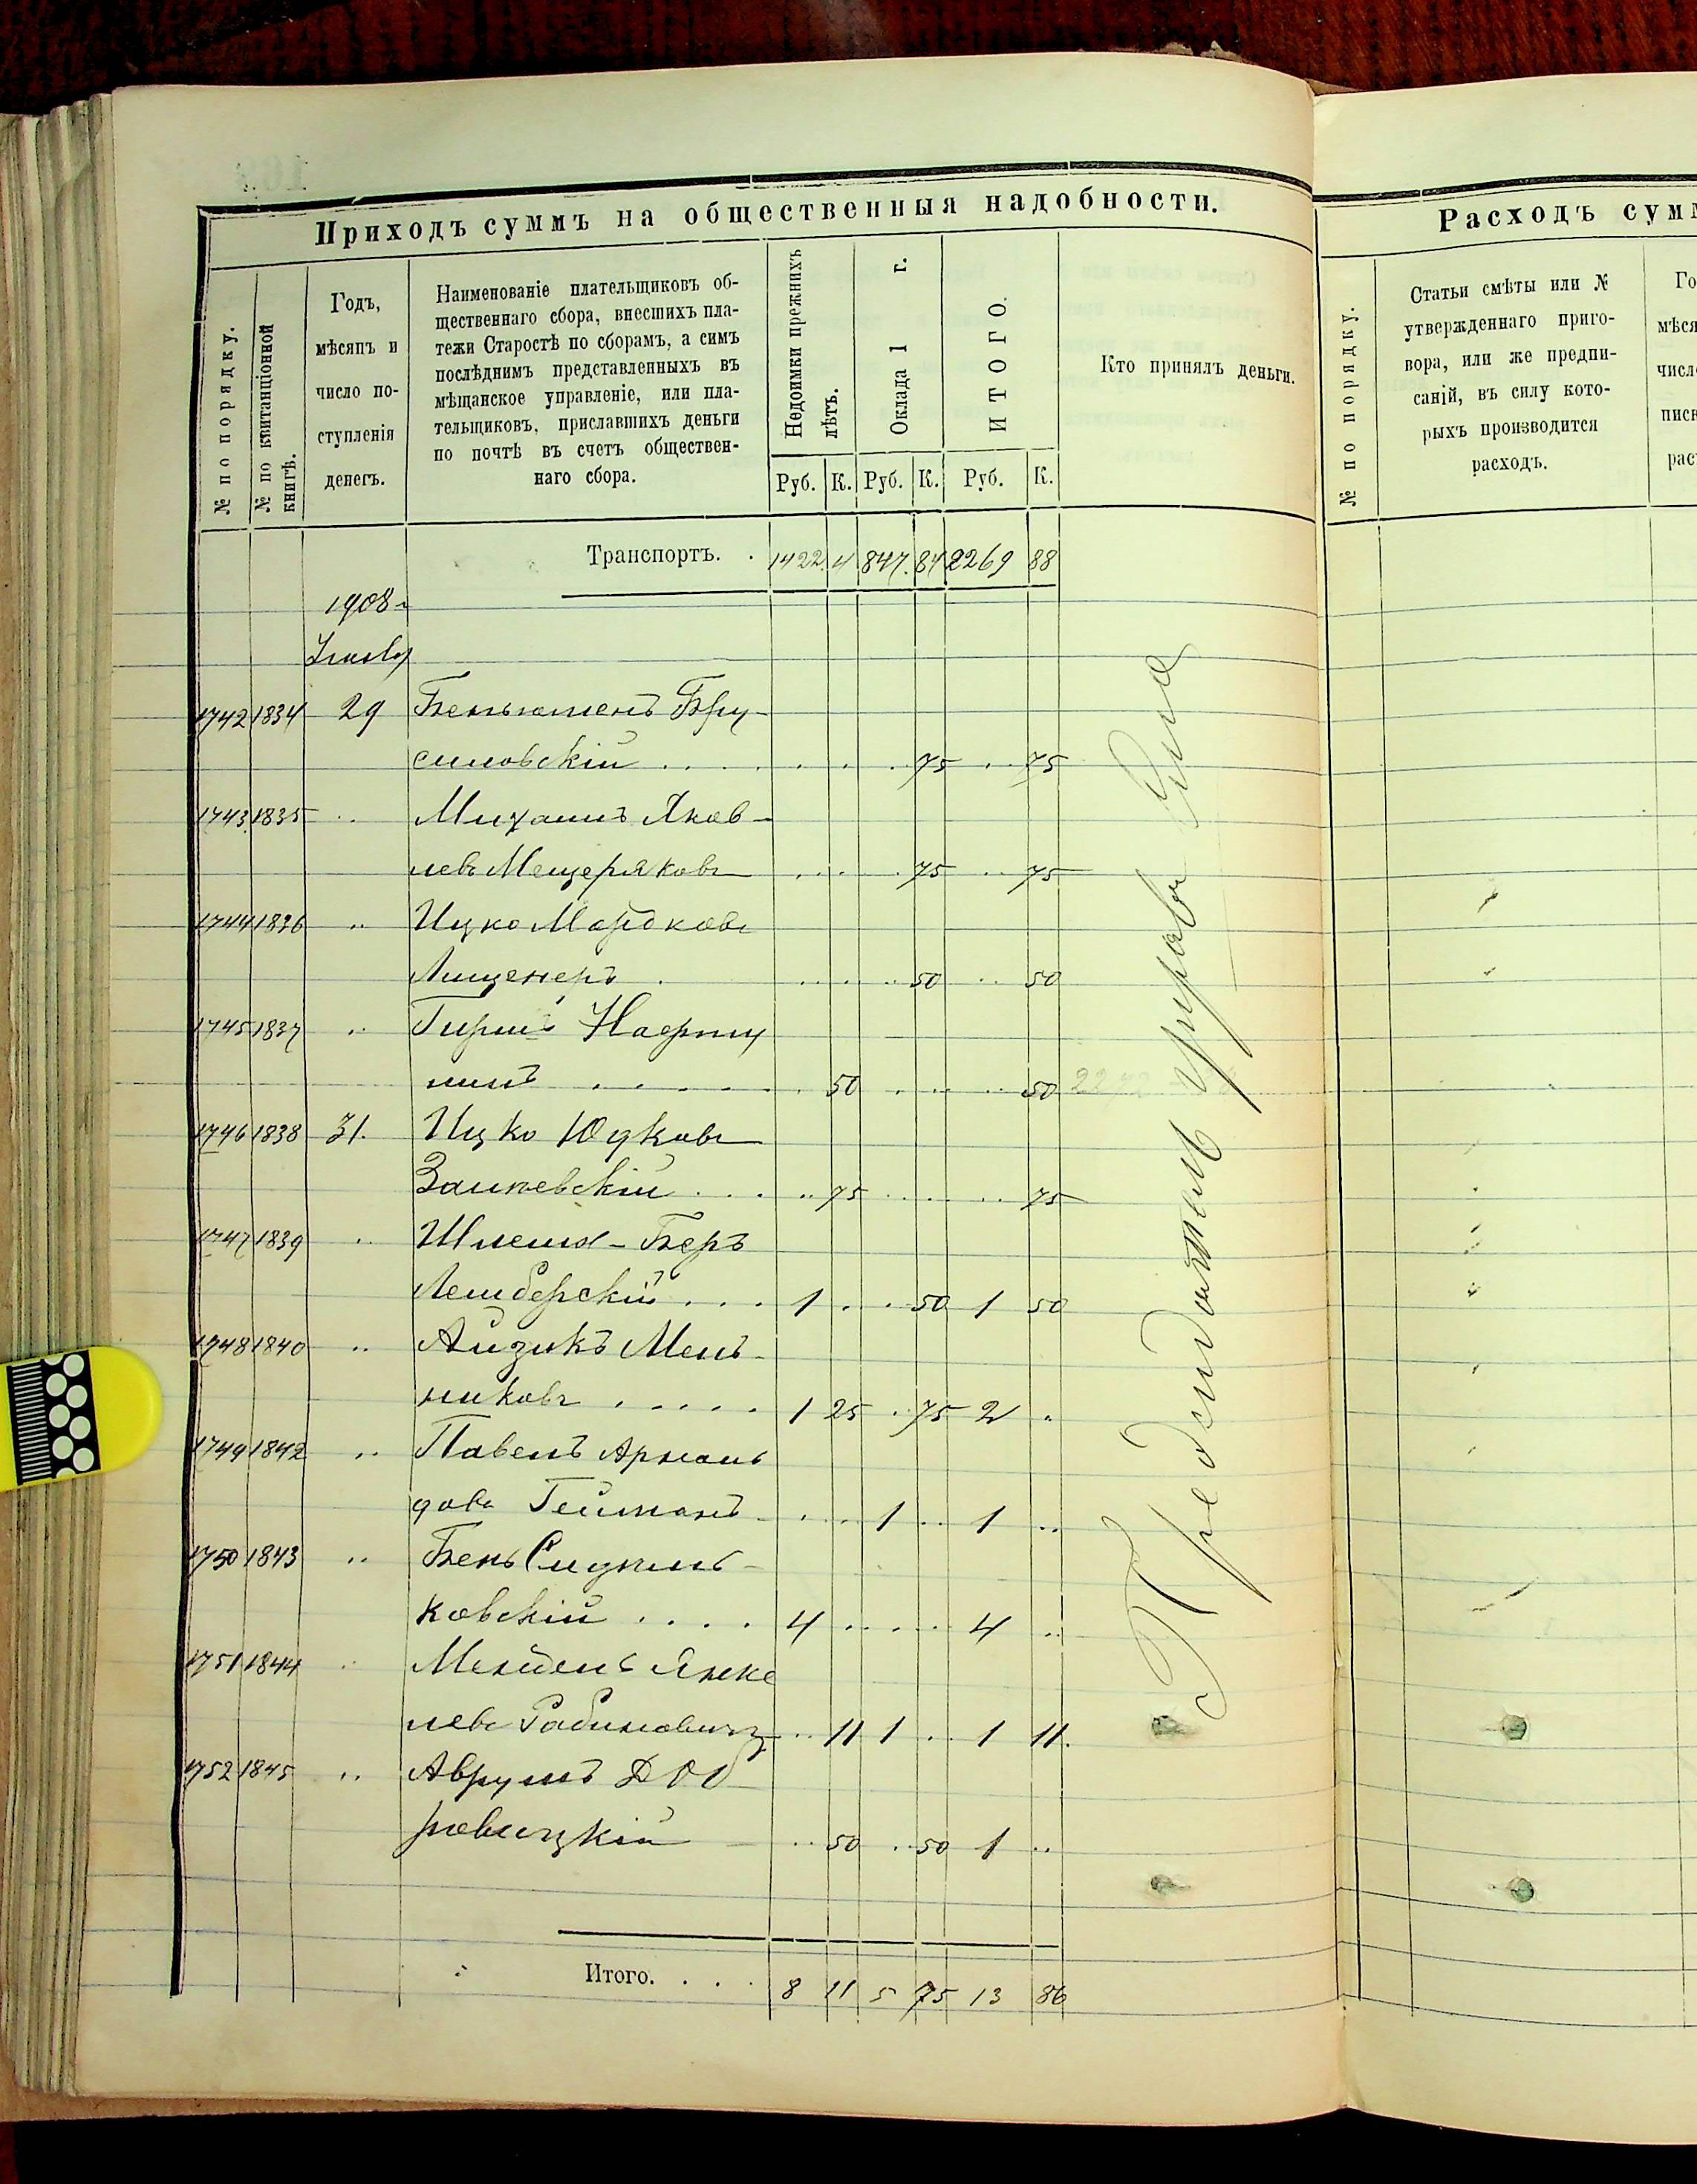 Приходъ суммъ на общественныя надобности.
№ по порядку.
№ по квитанціонной
книгѣ.
Годъ,
мѣсяцъ и
число по-
ступленія
денегъ.
Наименованіе плательщиковъ об-
щественнаго сбора, внесшихъ пла-
тежи Старостѣ по сборамъ, а симъ
послѣднимъ представленныхъ въ
мѣщанское управленіе, или пла-
тельщиковъ, приславшихъ деньги
по почтѣ въ счетъ обществен-
наго сбора.
Недоимки прежнихъ
лѣтъ.
Оклада 1 г.
ИТОГО.
Кто принялъ деньги.
Руб. К. Руб. К. Руб. К.
Транспортъ. . 1422 4 847 84 2269 88
1908
1742 1834 29 Беньяменъ Бру-
силовскій . . . . 75 . . 75
1743 1835 .. Михаилъ Яков-
левъ Мещеряковъ . . . . 75 . . 75
1744 1836 .. Ицко Мордковъ
. . . . 50 . . 50
1745 1837 .. Гиршъ
. . . . 50 . . . . 50
1746 1838 31. Ицко Юдковъ
Зашевскій . . . . 75 . . . . 75
1747 1839 .. Шлема-Беръ
Лемберскій . . . 1 . . 50 1 50
1748 1840 .. Айзикъ Мель-
никовъ . . . . . 1 25 . 75 2 "
1749 1842 .. Павелъ Арноль
довъ Гейманъ . . . 1 . . 1 ..
1750 1843 .. Бень
ковскій . . . . 4 . . . . 4 ..
1751 1844 .. Мендель Янке
левъ Рабиновичъ .. 11 1 .. 1 11.
1752 1845 .. Аврумъ Доб
ровицкій .. 50 . 50 1 ..
Итого. . . . 8 11 5 75 13 86
Предсѣдатель Управы
Расходъ сумм
№ по порядку.
Статьи смѣты или №
утвержденнаго приго-
вора, или же предпи-
саній, въ силу кото-
рыхъ производится
расходъ.
Го
мѣся
числ
писк
рас